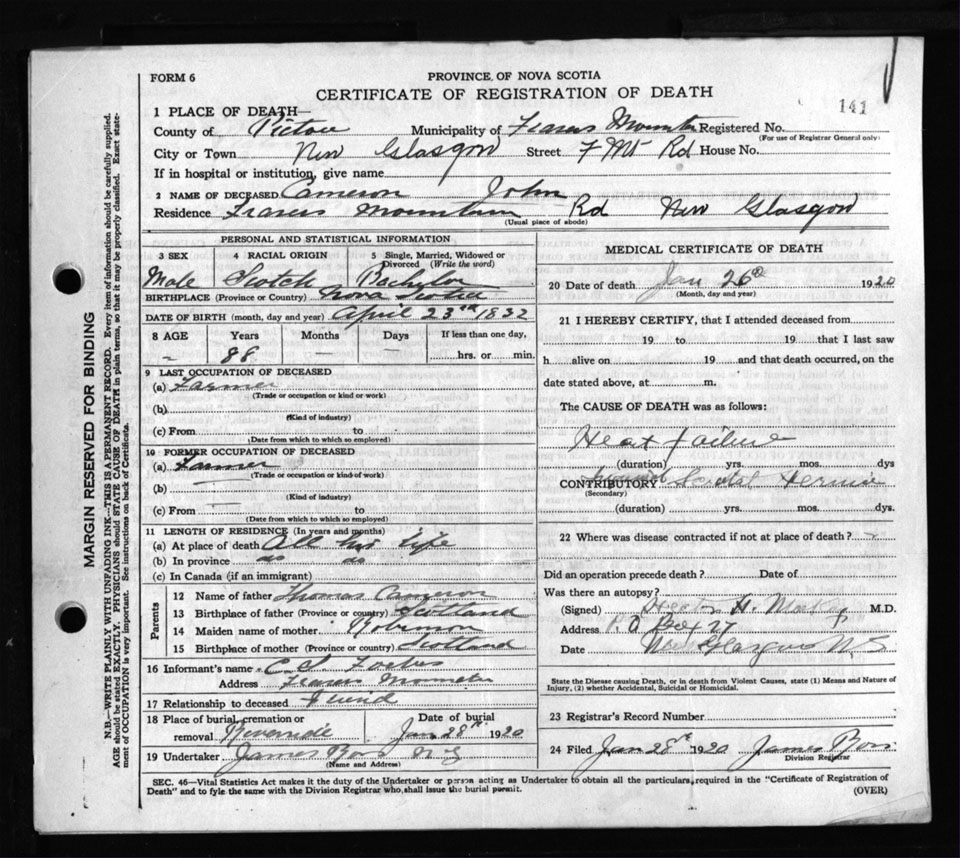 FORM 6
PROVINCE OF NOVA SCOTIA
CERTIFICATE OF REGISTRATION OF DEATH
141
1 PLACE OF DEATH—
County of Pictou Municipality of Frasers Mountn Registered No.
(For use of Registrar General only)
City or Town New Glasgow Street F Mt Rd House No.
If in hospital or institution, give name
2 NAME OF DECEASED Cameron John
Residence Frasers Mountain Rd New Glasgow
(Usual place of abode)
MARGIN RESERVED FOR BINDING
N.B.—WRITE PLAINLY WITH UNFADING INK—THIS IS A PERMANENT RECORD. Every item of information should be carefully supplied.
AGE should be stated EXACTLY. PHYSICIANS should STATE CAUSE OF DEATH in plain terms, so that it may be properly classified. Exact statement of OCCUPATION is very important. See instructions on back of Certificate.
PERSONAL AND STATISTICAL INFORMATION
3 SEX 4 RACIAL ORIGIN 5 Single, Married, Widowed or Divorced (Write the word)
Male Scotch Bachelor
BIRTHPLACE (Province or Country) Nova Scotia
DATE OF BIRTH (month, day and year) April 23rd 1832
8 AGE Years Months Days If less than one day,
– 88 — — hrs. or min.
9 LAST OCCUPATION OF DECEASED
(a) Farmer
(Trade or occupation or kind or work)
(b)
(Kind of industry)
(c) From to
(Date from which to which so employed)
10 FORMER OCCUPATION OF DECEASED
(a) Farmer
(Trade or occupation or kind of work)
(b)
(Kind of industry)
(c) From to
(Date from which to which so employed)
11 LENGTH OF RESIDENCE (In years and months)
(a) At place of death All his Life
(b) In province do do
(c) In Canada (if an immigrant)
Parents
12 Name of father Thomas Cameron
13 Birthplace of father (Province or country) Scotland
14 Maiden name of mother Robinson
15 Birthplace of mother (Province or country) Scotland
16 Informant's name C S Forbes
Address Frasers Mountain
17 Relationship to deceased Friend
18 Place of burial, cremation or removal Riverside Date of burial Jan 28th 1920
19 Undertaker James Ross N G
(Name and Address)
MEDICAL CERTIFICATE OF DEATH
20 Date of death Jan 26th 1920
(Month, day and year)
21 I HEREBY CERTIFY, that I attended deceased from
19 to 19 that I last saw
h alive on 19 and that death occurred, on the
date stated above, at m.
The CAUSE OF DEATH was as follows:
Heart failure
(duration) yrs. mos. dys
CONTRIBUTORY Scrotal Hernia
(Secondary)
(duration) yrs. mos. dys.
22 Where was disease contracted if not at place of death?
Did an operation precede death? Date of
Was there an autopsy?
(Signed) H. M.D.
Address P O Box 27
Date New Glasgow N.S
State the Disease causing Death, or in death from Violent Causes, state (1) Means and Nature of Injury, (2) whether Accidental, Suicidal or Homicidal.
23 Registrar's Record Number
24 Filed Jan 28th 1920 James Ross
Division Registrar
SEC. 46—Vital Statistics Act makes it the duty of the Undertaker or person acting as Undertaker to obtain all the particulars required in the "Certificate of Registration of
Death" and to fyle the same with the Division Registrar who shall issue the burial permit. (OVER)